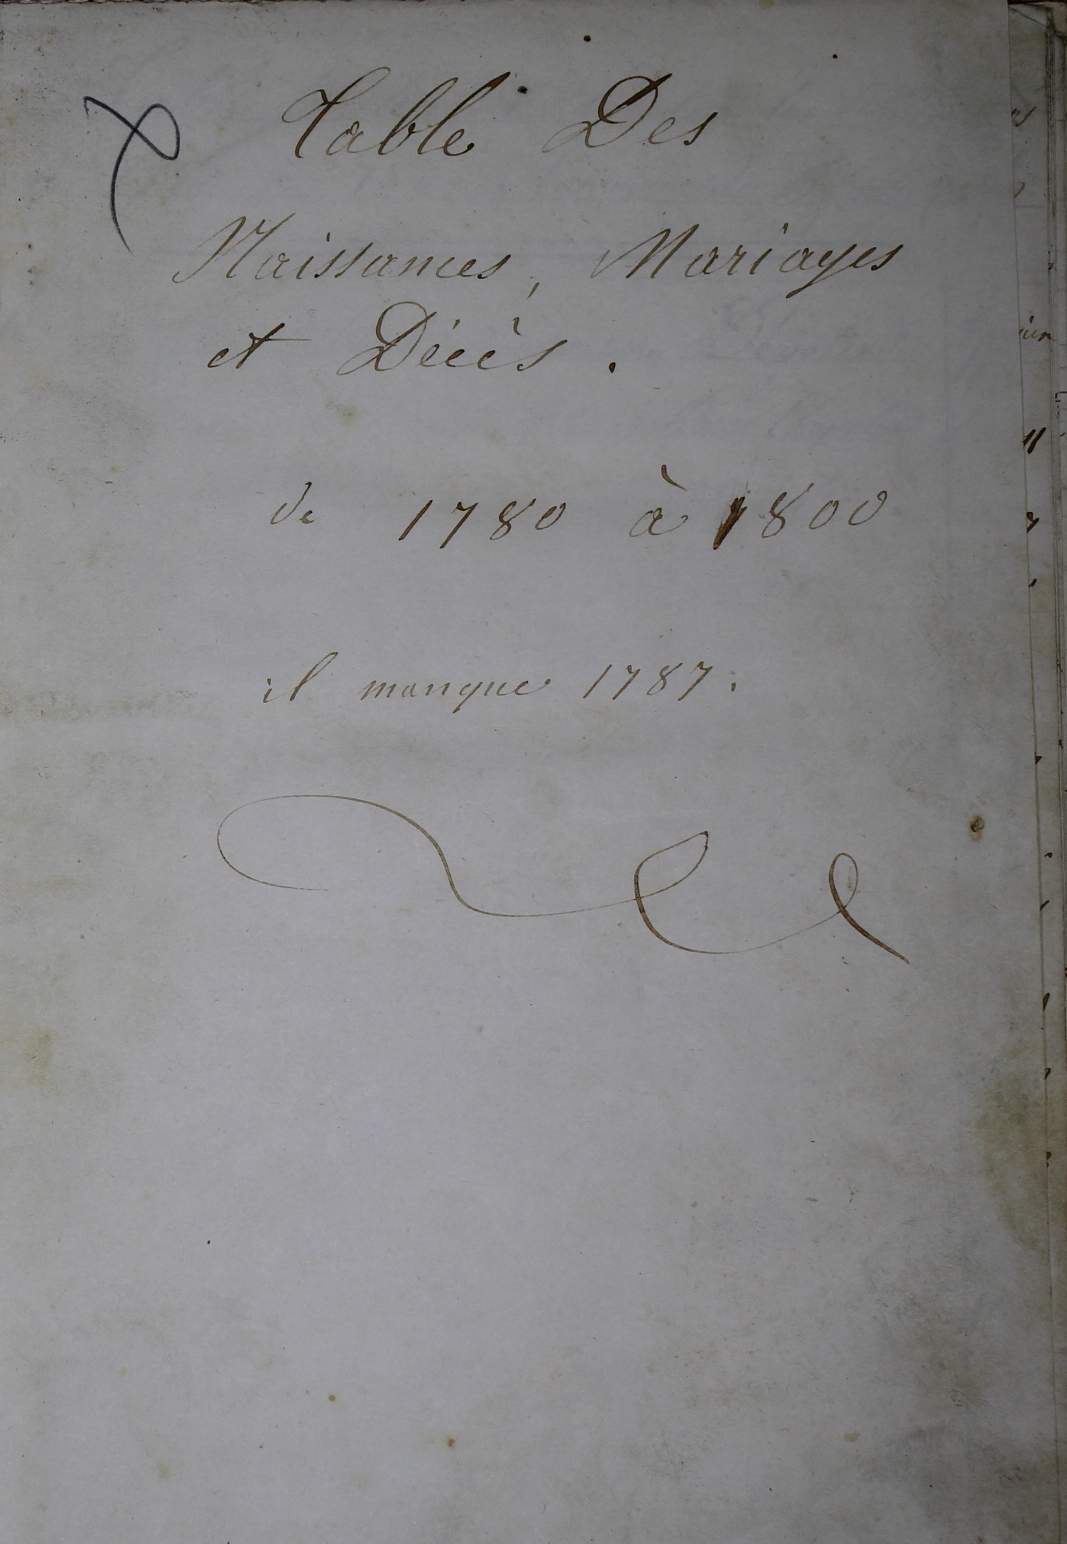 Table Des
Naissances, Mariages
et Décès.
de 1780 à 1800
il manque 1787.